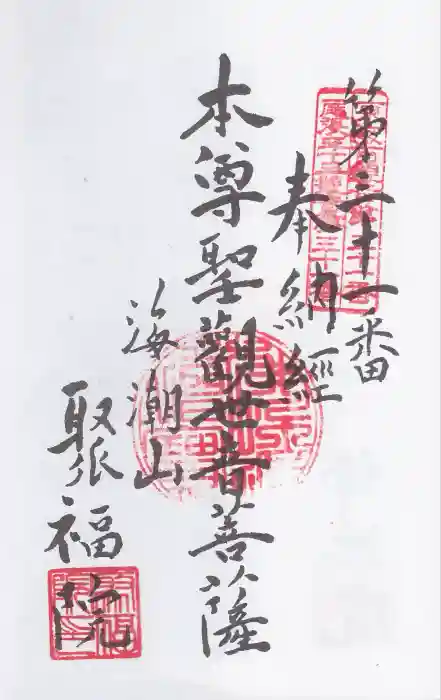 第三十一番
奉納経
本尊聖観世音菩薩
海潮山
聚福院